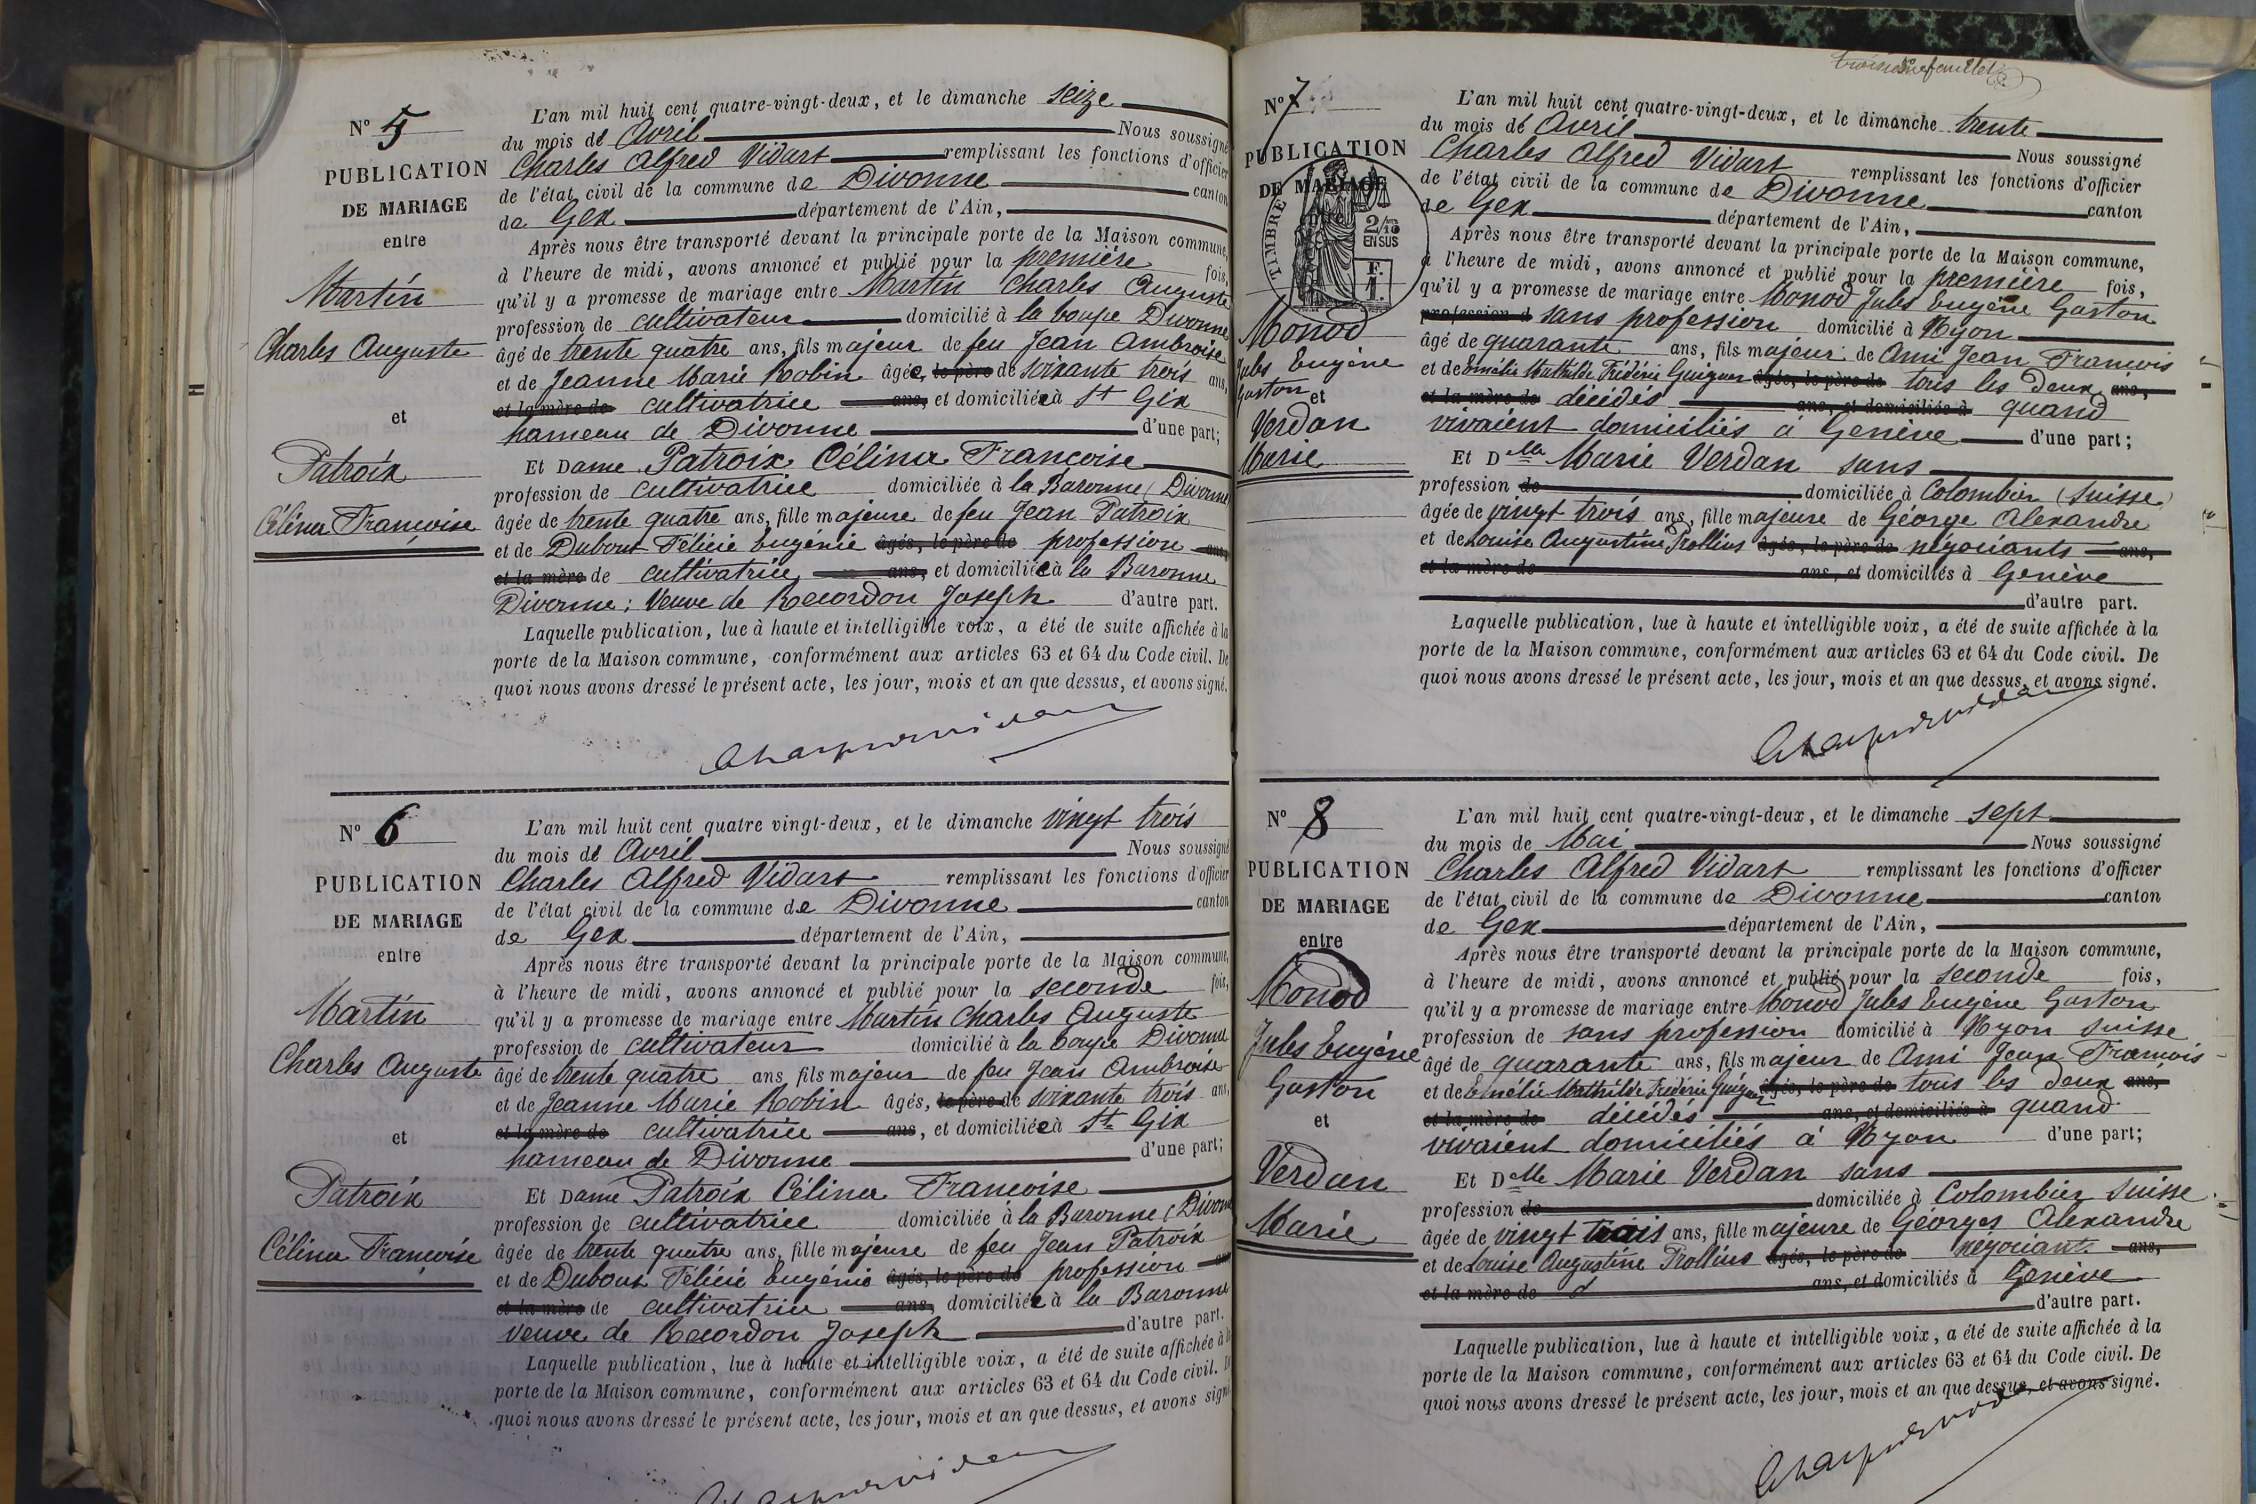 N° 5
PUBLICATION
DE MARIAGE
entre
Martin
Charles Auguste
et
Patroix
Célina Françoise
L'an mil huit cent quatre-vingt-deux, et le dimanche seize
du mois de Avril Nous soussigné
Charles Alfred Vidart remplissant les fonctions d'officier
de l'état civil de la commune de Divonne canton
de Gex département de l'Ain,
Après nous être transporté devant la principale porte de la Maison commune,
à l'heure de midi, avons annoncé et publié pour la première fois,
qu'il y a promesse de mariage entre Martin Charles Auguste
profession de cultivateur domicilié à la Coupe Divonne
âgé de trente quatre ans, fils majeur de feu Jean Ambroise
et de Jeanne Marie Robin âgée, le père de soixante trois ans,
et la mère de cultivatrice ans, et domiciliée à St Gix
hameau de Divonne d'une part;
Et Dame Patroix Célina Françoise
profession de cultivatrice domiciliée à la Baronne (Divonne
âgée de trente quatre ans, fille majeure de feu Jean Patroix
et de Dubout Félicie Eugénie âgés, le père de profession ans,
et la mère de cultivatrice ans, et domiciliée à la Baronne
Divonne; Veuve de Recordon Joseph d'autre part.
Laquelle publication, lue à haute et intelligible voix, a été de suite affichée à la
porte de la Maison commune, conformément aux articles 63 et 64 du Code civil. De
quoi nous avons dressé le présent acte, les jour, mois et an que dessus, et avons signé.
N° 6
PUBLICATION
DE MARIAGE
entre
Martin
Charles Auguste
et
Patroix
Célina Françoise
L'an mil huit cent quatre vingt-deux, et le dimanche vingt trois
du mois de Avril Nous soussigné
Charles Alfred Vidart remplissant les fonctions d'officier
de l'état civil de la commune de Divonne canton
de Gex département de l'Ain,
Après nous être transporté devant la principale porte de la Maison commune,
à l'heure de midi, avons annoncé et publié pour la seconde fois,
qu'il y a promesse de mariage entre Martin Charles Auguste
profession de cultivateur domicilié à la Coupe Divonne
âgé de trente quatre ans fils majeur de feu Jean Ambroise
et de Jeanne Marie Robin âgés, le père de soixante trois ans,
et la mère de cultivatrice ans, et domiciliée à St Gix
hameau de Divonne d'une part;
Et Dame Patroix Célina Françoise
profession de cultivatrice domiciliée à la Baronne (Divonne
âgée de trente quatre ans, fille majeure de feu Jean Patroix
et de Dubout Félicie Eugénie âgés, le père de profession ans
et la mère de cultivatrice ans, domiciliée à la Baronne
veuve de Recordon Joseph d'autre part.
Laquelle publication, lue à haute et intelligible voix, a été de suite affichée à la
porte de la Maison commune, conformément aux articles 63 et 64 du Code civil. De
quoi nous avons dressé le présent acte, les jour, mois et an que dessus, et avons signé
troisième feuillet
N° 7
PUBLICATION
DE MARIAGE
entre
TIMBRE
2/10
EN SUS
F.
1.
Monod
Jules Eugène
Gaston et
Verdan
Marie
L'an mil huit cent quatre-vingt-deux, et le dimanche trente
du mois de Avril Nous soussigné
Charles Alfred Vidart remplissant les fonctions d'officier
de l'état civil de la commune de Divonne canton
de Gex département de l'Ain,
Après nous être transporté devant la principale porte de la Maison commune,
à l'heure de midi, avons annoncé et publié pour la première fois,
qu'il y a promesse de mariage entre Monod Jules Eugène Gaston
profession d sans profession domicilié à Nyon
âgé de quarante ans, fils majeur de Ami Jean François
et de Emélie Mathilde Frédérie Guiguer âgés, le père de tous les deux ans,
et la mère de décédés ans, et domiciliés à quand
vivaient domiciliés à Genève d'une part;
Et Delle Marie Verdan sans
profession de domiciliée à Colombier (Suisse)
âgée de vingt trois ans, fille majeure de George Alexandre
et de Louise Augustine Trollius âgés, le père de négociants ans,
et la mère de ans, et domiciliés à Genève
d'autre part.
Laquelle publication, lue à haute et intelligible voix, a été de suite affichée à la
porte de la Maison commune, conformément aux articles 63 et 64 du Code civil. De
quoi nous avons dressé le présent acte, les jour, mois et an que dessus, et avons signé.
N° 8
PUBLICATION
DE MARIAGE
entre
Monod
Jules Eugène
Gaston
et
Verdan
Marie
L'an mil huit cent quatre-vingt-deux, et le dimanche sept
du mois de Mai Nous soussigné
Charles Alfred Vidart remplissant les fonctions d'officier
de l'état civil de la commune de Divonne canton
de Gex département de l'Ain,
Après nous être transporté devant la principale porte de la Maison commune,
à l'heure de midi, avons annoncé et publié pour la seconde fois,
qu'il y a promesse de mariage entre Monod Jules Eugène Gaston
profession de sans profession domicilié à Nyon Suisse
âgé de quarante ans, fils majeur de Ami Jean François
et de Emélie Mathilde Frédérie Guiguer âgés, le père de tous les deux ans,
et la mère de décédés ans, et domiciliés à quand
vivaient domiciliés à Nyon d'une part;
Et Delle Marie Verdan sans
profession de domiciliée à Colombier Suisse
âgée de vingt trois ans, fille majeure de Georges Alexandre
et de Louise Augustine Trollius âgés, le père de négociants ans,
et la mère de ans, et domiciliés à Genève
d'autre part.
Laquelle publication, lue à haute et intelligible voix, a été de suite affichée à la
porte de la Maison commune, conformément aux articles 63 et 64 du Code civil. De
quoi nous avons dressé le présent acte, les jour, mois et an que dessus, et avons signé.